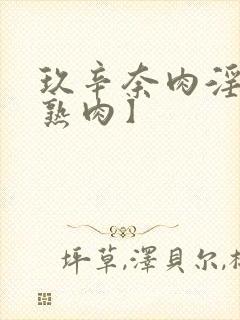 玖辛奈肉淫
熟肉】
坪草,澤貝尔,杉